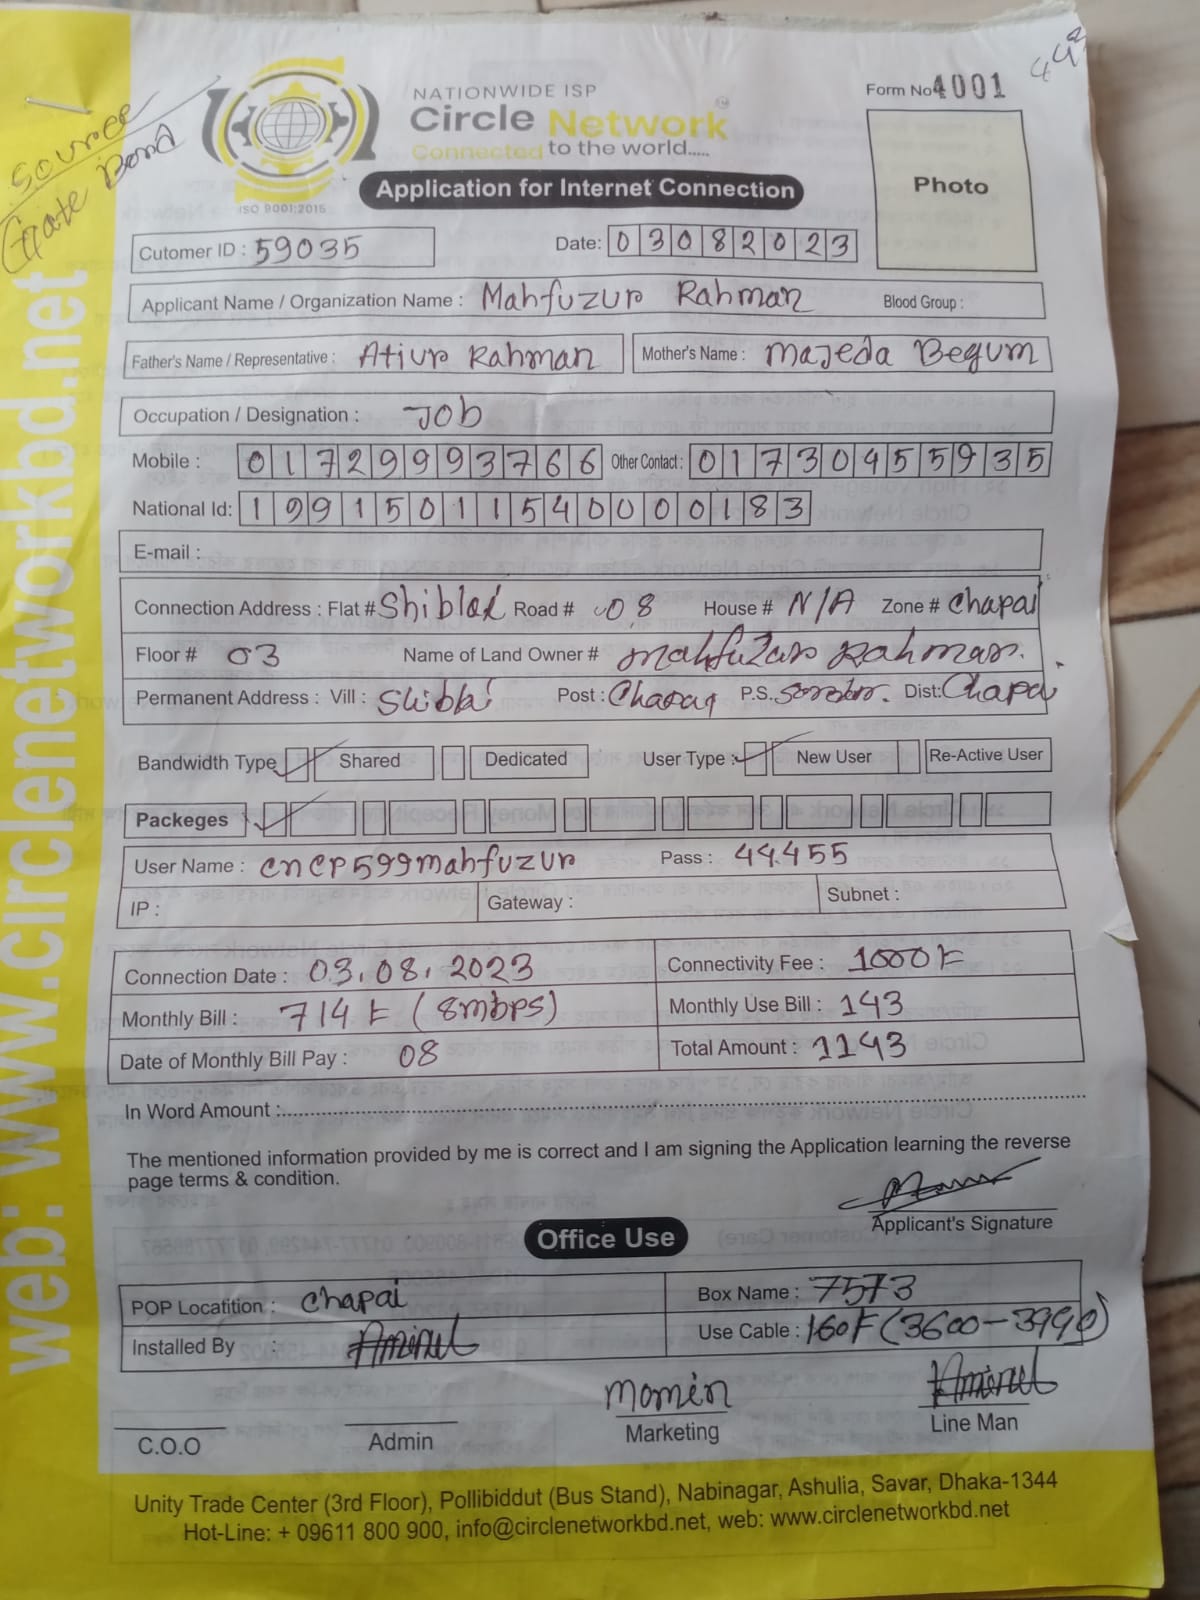 Source
Gate Bond
NATIONWIDE ISP
Circle Network
Connected to the world.....
ISO 9001:2015
Form No 4001
442
Photo
Application for Internet Connection
Cutomer ID : 59035
Date: 03082023
Applicant Name / Organization Name : Mahfuzur Rahman Blood Group :
Father's Name / Representative : Atiur Rahman Mother's Name : Majeda Begum
Occupation / Designation : Job
Mobile : 01729993766 Other Contact : 01730455935
National Id: 19915011540000183
E-mail :
Connection Address : Flat # Shiblal Road # 08 House # N/A Zone # Chapai
Floor # 03 Name of Land Owner # Mahfuzur Rahman.
Permanent Address : Vill : Post : P.S. Dist: Chapai
Bandwidth Type Shared Dedicated User Type : New User Re-Active User
Packeges
User Name : cncp599mahfuzur Pass : 44455
IP : Gateway : Subnet :
Connection Date : 03.08.2023 Connectivity Fee : 1000৳
Monthly Bill : 714৳ (8mbps) Monthly Use Bill : 143
Date of Monthly Bill Pay : 08 Total Amount : 1143
In Word Amount :
The mentioned information provided by me is correct and I am signing the Application learning the reverse
page terms & condition.
Applicant's Signature
Office Use
POP Locatition : Chapai Box Name : 7573
Installed By : Aminul Use Cable : 160F (3600-3990)
Momin Aminul
C.O.O Admin Marketing Line Man
Unity Trade Center (3rd Floor), Pollibiddut (Bus Stand), Nabinagar, Ashulia, Savar, Dhaka-1344
Hot-Line: + 09611 800 900, info@circlenetworkbd.net, web: www.circlenetworkbd.net
web: www.circlenetworkbd.net